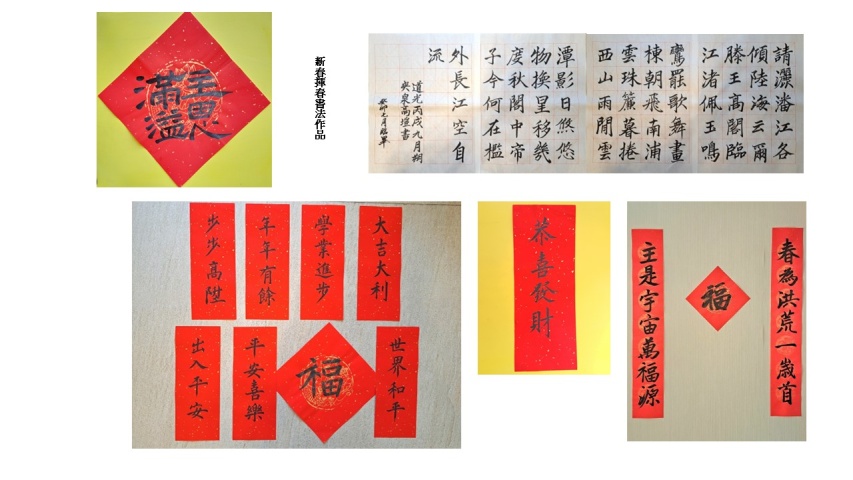 主恩
滿溢
新春揮春書法作品
請灑潘江各
傾陸海云爾
滕王高閣臨
江渚佩玉鳴
鸞罷歌舞畫
棟朝飛南浦
雲珠簾暮捲
西山雨閒雲
潭影日悠悠
物換星移幾
度秋閣中帝
子今何在檻
外長江空自
流
道光丙戌九月
高塏書
月臨畢
大吉大利
學業進步
年年有餘
步步高陞
世界和平
福
平安喜樂
出入平安
恭喜發財
春為洪荒一歲首
福
主是宇宙萬福源